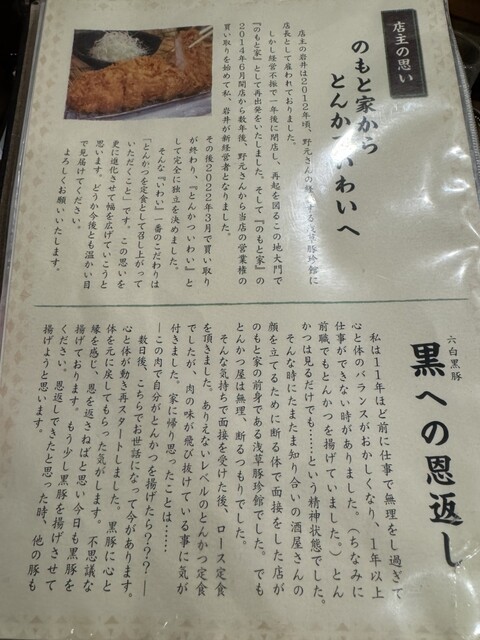 店主の思い
のもと家から
とんかついわいへ
店主の岩井は2012年頃、野元さんの経営する浅草豚珍館に
店長として雇われておりました。
しかし経営不振で一年後に閉店し、再起を図るこの地大門で
『のもと家』として再出発をいたしました。そして『のもと家』の
2014年6月開店から数年後、野元さんから当店の営業権の
買い取りを始めて私、岩井が新経営者となりました。
その後2022年3月で買い取り
が終わり、『とんかついわい』と
して完全に独立を決めました。
そんな『いわい』一番のこだわりは
「とんかつを定食として召し上がって
いただくこと」です。この思いを
更に進化させて幅を広げていこうと
思います。どうか今後とも温かい目
で見届けてください。
よろしくお願いいたします。
六白黒豚
黒への恩返し
私は11年ほど前に仕事で無理をし過ぎて
心と体のバランスがおかしくなり、1年以上
仕事ができない時がありました。(ちなみに
前職でもとんかつを揚げていました。)とん
かつは見るだけでも……という精神状態でした。
そんな時にたまたま知り合いの酒屋さんの
顔を立てるために断る体で面接をした店が
のもと家の前身である浅草豚珍館でした。でも
とんかつ屋は無理、断るつもりでした。
そんな気持ちで面接を受けた後、ロース定食
を頂きました。ありえないレベルのとんかつ定食
でしたが、肉の味が飛び抜けている事に気が
付きました。家に帰り思ったことは……
―この肉で自分がとんかつを揚げたら???―
数日後、こちらでお世話になって今があります。
心と体が動き再スタートしました。黒豚に心と
体を元に戻してもらった気がします。不思議な
縁を感じ、恩を返さねばと思い今日も黒豚を
揚げております。もう少し黒豚を揚げさせて
ください。恩返しできたと思った時、他の豚も
揚げようと思います。